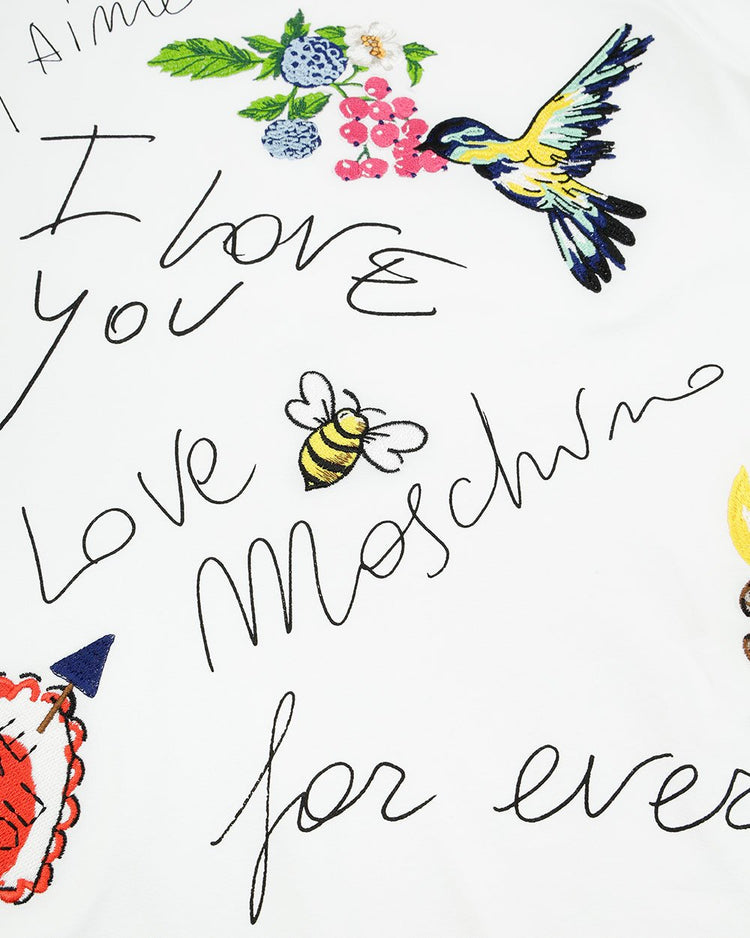 Aime
I Love
You
Love Moschino
for ever